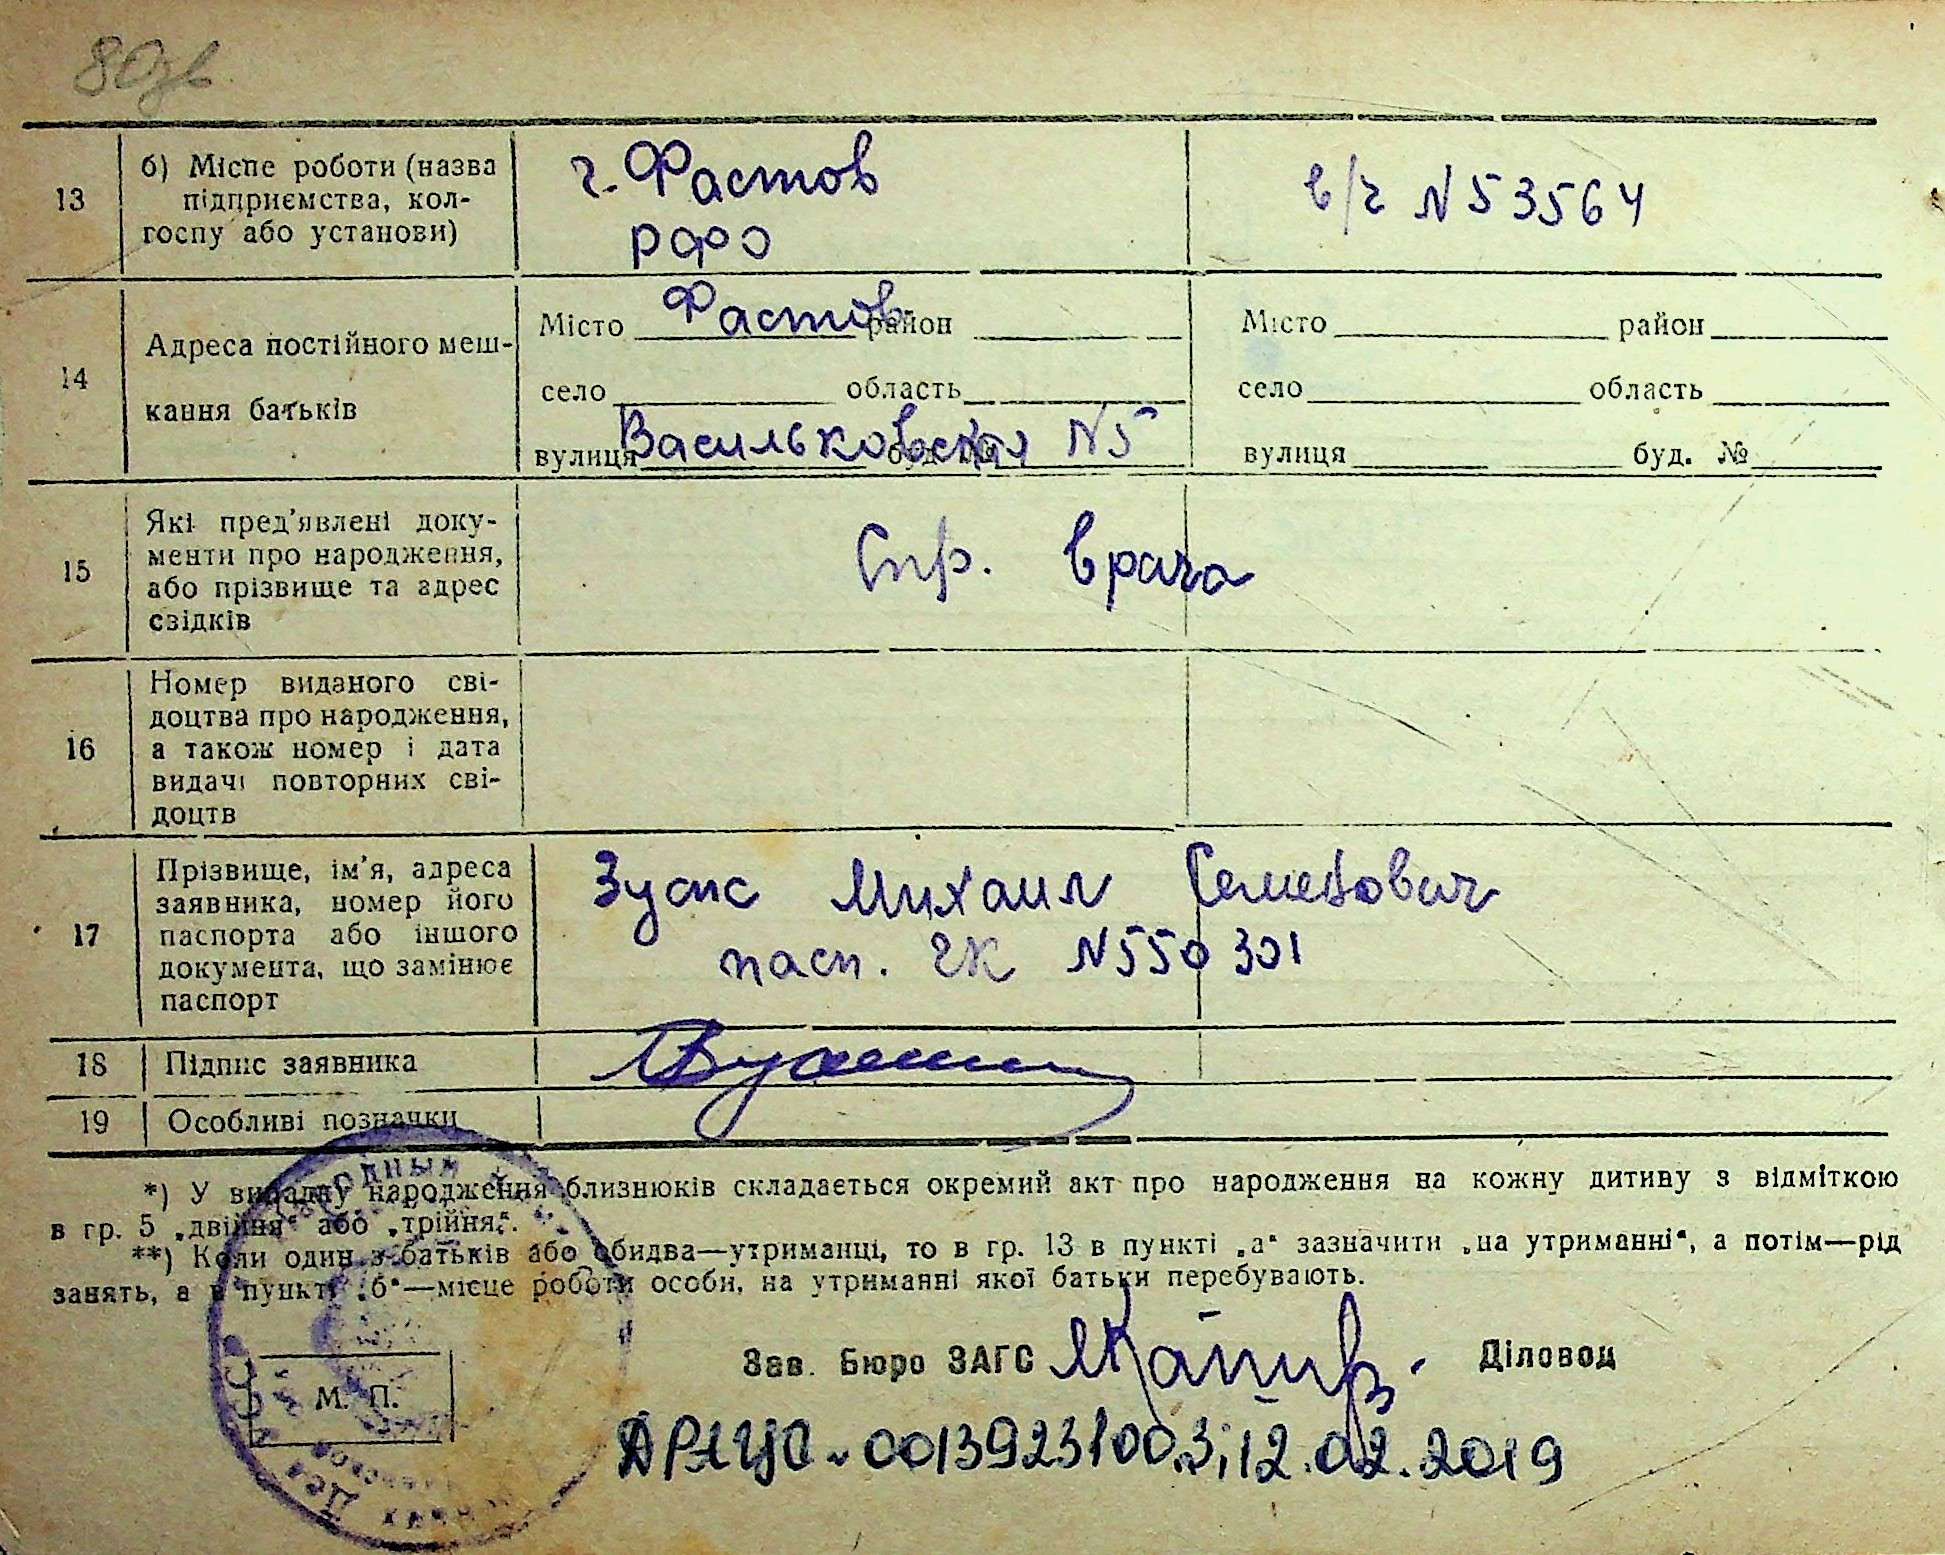 80зв.
13 б) Місце роботи (назва підприємства, колгоспу або установи)
г. Фастов
РФО
в/ч N 53564
14 Адреса постійного мешкання батьків
Місто Фастов район
село область
вулиця Васильковская N5 буд. №
Місто район
село область
вулиця буд. №
15 Які пред'явлені документи про народження, або прізвище та адрес свідків
Спр. врача
16 Номер виданого свідоцтва про народження, а також номер і дата видачі повторних свідоцтв
17 Прізвище, ім'я, адреса заявника, номер його паспорта або іншого документа, що замінює паспорт
Михаил Семенович
пасп. ЧК N 550301
18 Підпис заявника
19 Особливі позначки
*) У випадку народження близнюків складається окремий акт про народження на кожну дитину з відміткою
в гр. 5 „двійня“ або „трійня“.
**) Коли один з батьків або обидва—утриманці, то в гр. 13 в пункті „а“ зазначити „на утриманні“, а потім—рід
занять, а в пункті „б“—місце роботи особи, на утриманні якої батьки перебувають.
Зав. Бюро ЗАГС Діловод
М. П.
ДРАЦС - 00139231003; 12.02.2019